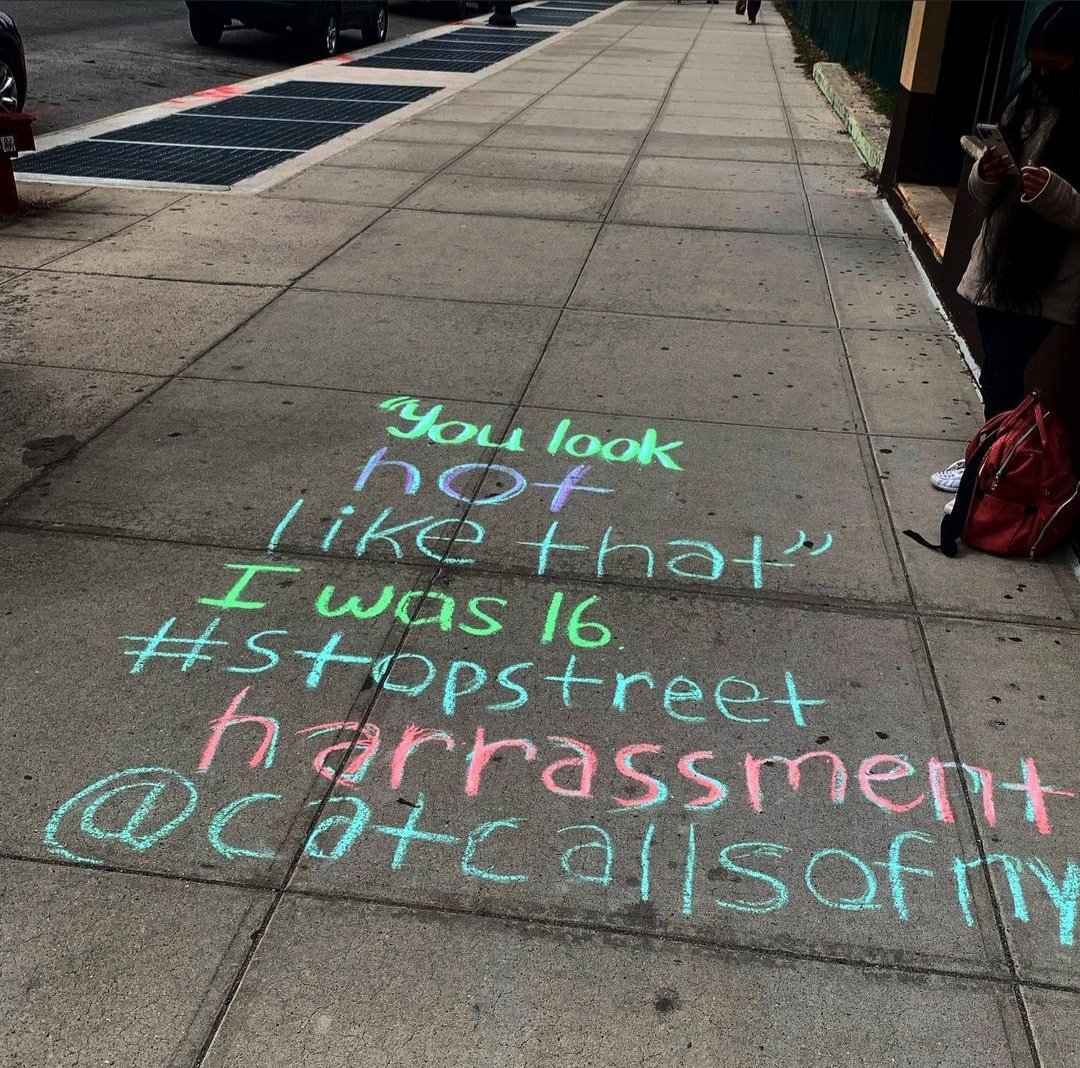 “You look
hot
like that”
I was 16.
#stopstreet
harrassment
@catcallsofny